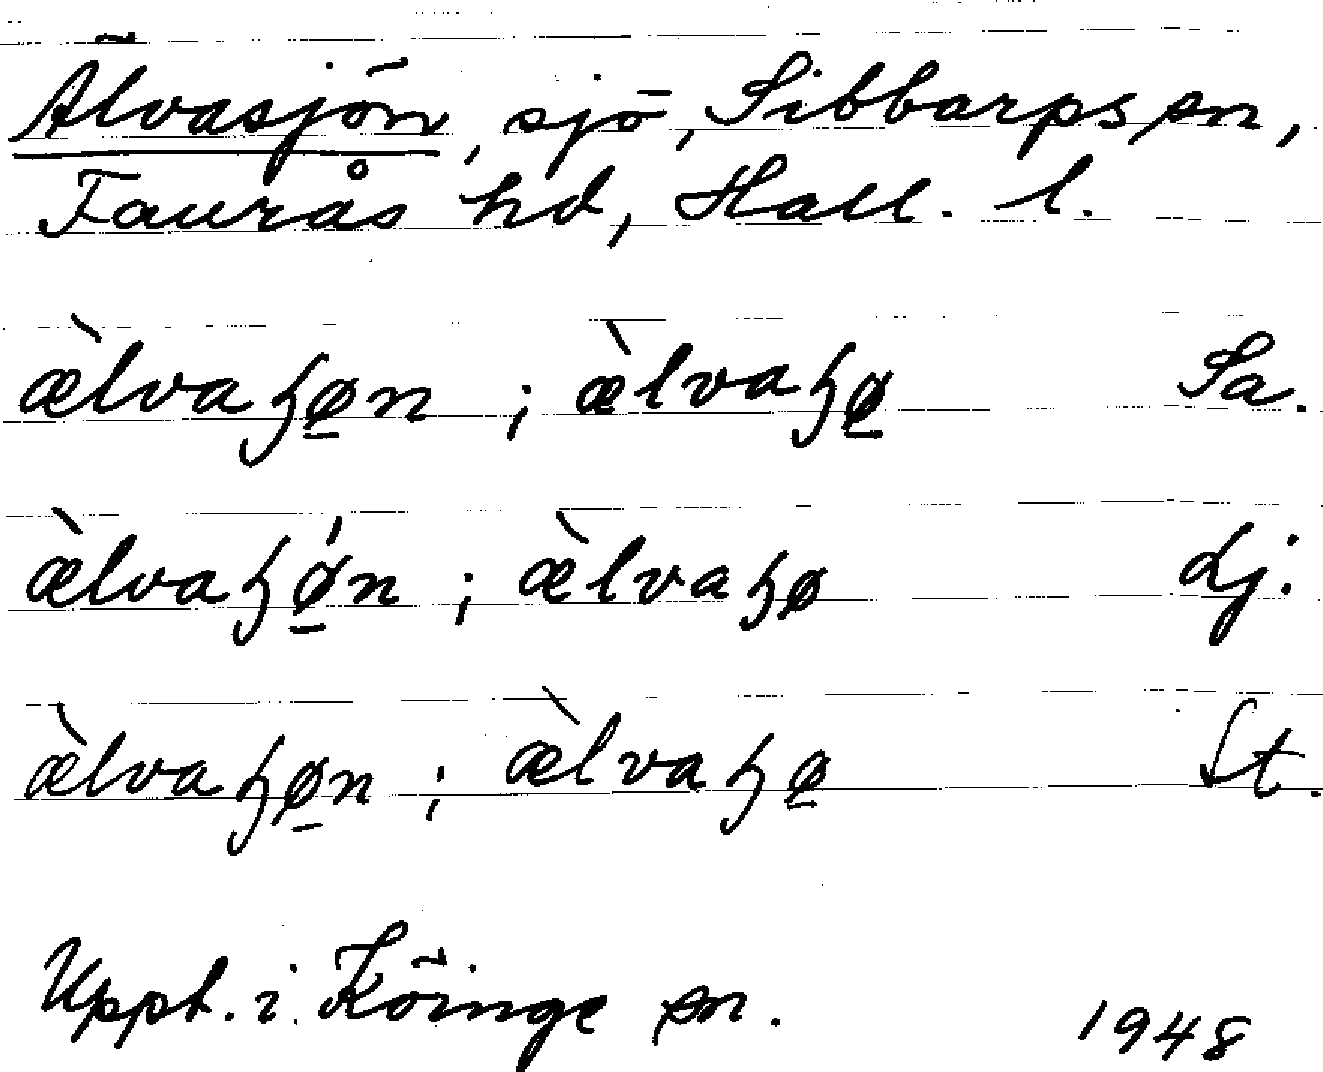 Älvasjön, sjö, Sibbarps sn,
Faurås hd, Hall. l.
æ̀lvaɧø̱n ; æ̀lvaɧø̱ Sa.
æ̀lvaɧǿ̱n ; æ̀lvaɧø Lj.
æ̀lvaɧø̱n ; æ̀lvaɧø̱ St.
Uppt. i Köinge sn. 1948